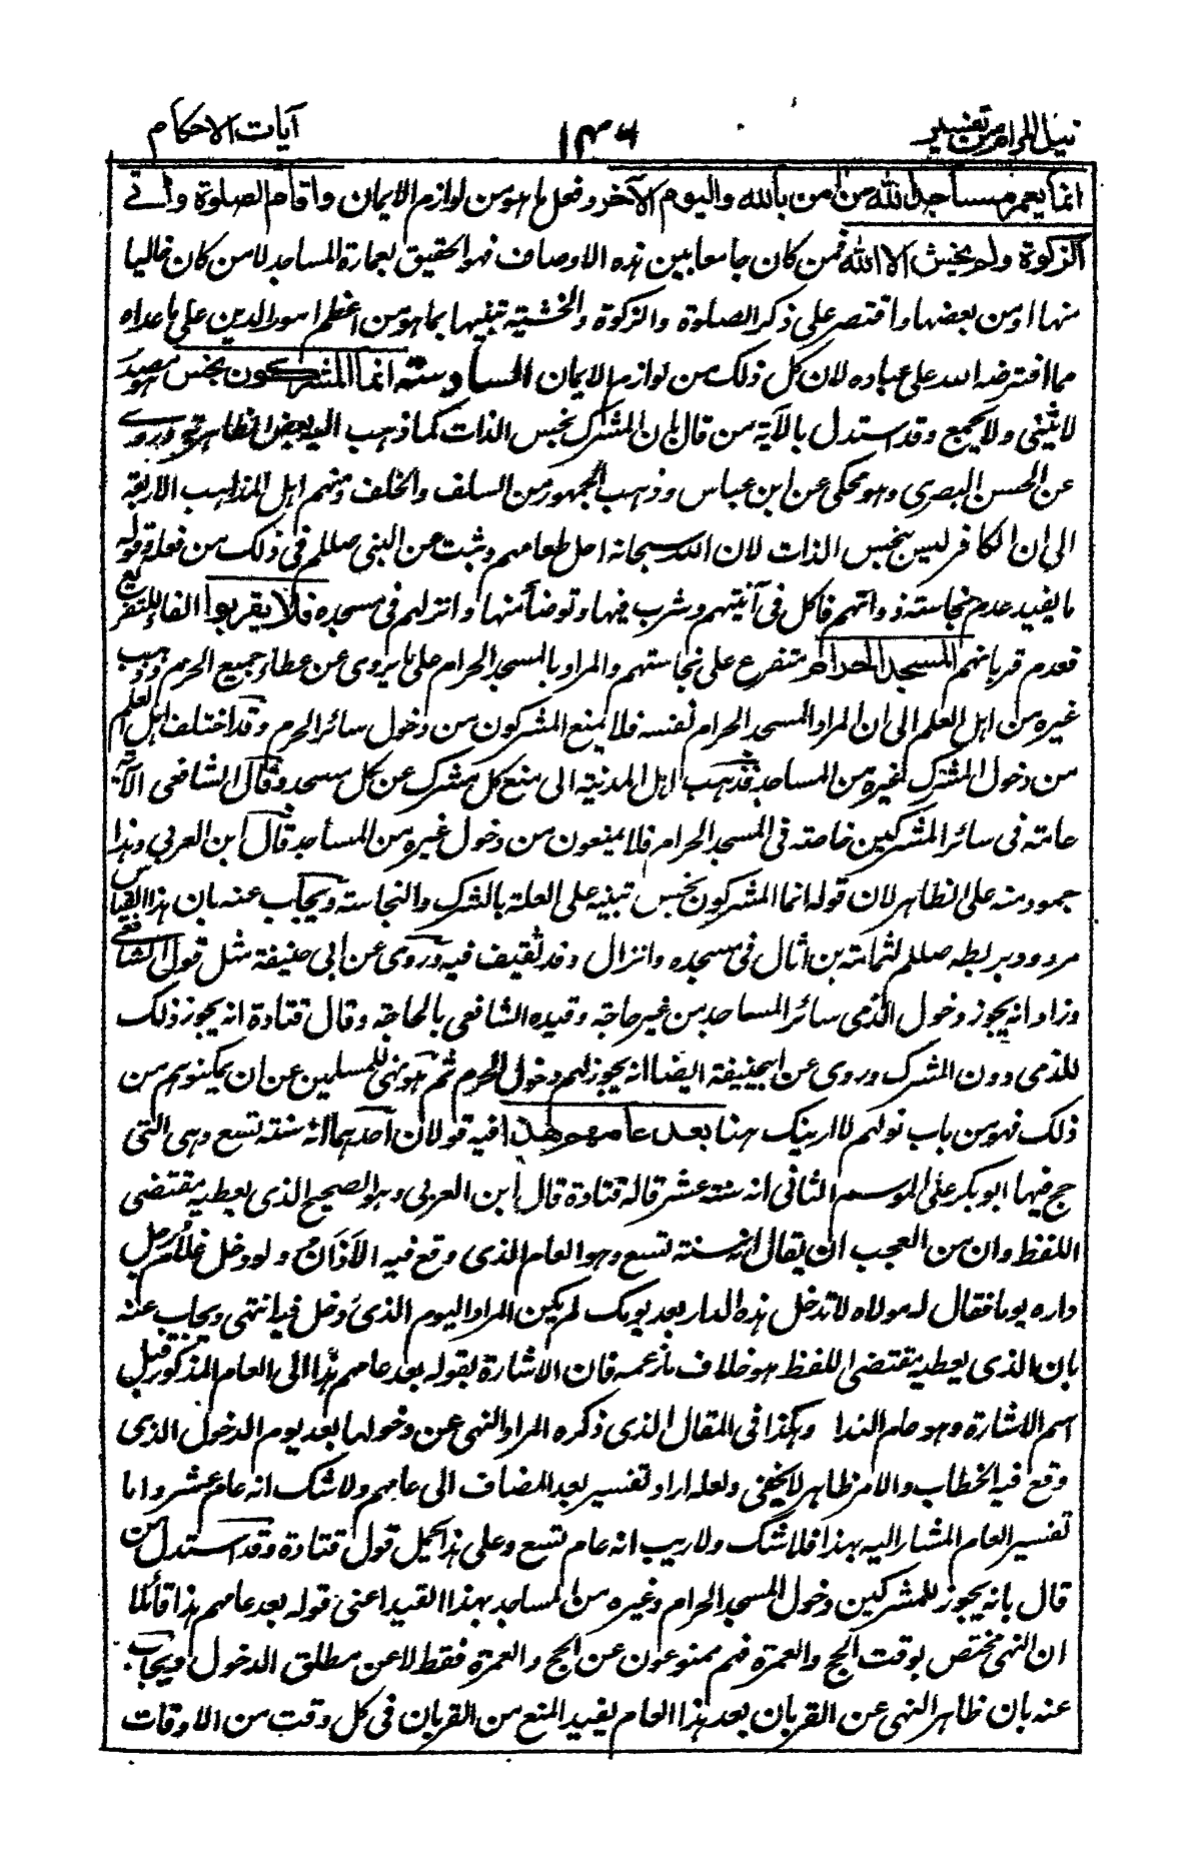 نيل المرام من تفسير ١٣٦ آيات الاحكام
انما يعمر مساجد الله من امن بالله واليوم الآخر وفعل ما هو من لوازم الايمان واقام الصلوة واٰتى
الزكوة ولم يخش الا الله فمن كان جامعا بين هذه الاوصاف فهو الحقيق بعمارة المساجد لا من كان خاليا
منها او من بعضها واقتصر على ذكر الصلوة والزكوة والخشية تنبيها بما هو من اعظم امور الدين على ما عداه
مما افترضه الله على عباده لان كل ذلك من لوازم الايمان السادسة انما المشركون نجس هو مصدر
لا يثنى ولا يجمع وقد استدل بالآية من قال بان المشرك نجس الذات كما ذهب اليه بعض الظاهرية وروى
عن الحسن البصرى وهو محكى عن ابن عباس وذهب الجمهور من السلف والخلف ومنهم اهل المذاهب الاربعة
الى ان الكافر ليس بنجس الذات لان الله سبحانه احل طعامهم وثبت عن النبى صللم فى ذلك من فعله وقوله
ما يفيد عدم نجاسة ذواتهم فاكل فى آنيتهم وشرب فيها وتوضأ منها وانزلهم فى مسجده فلا يقربوا الفاء للتفريع
فعدم قربانهم المسجد الحرام متفرع على نجاستهم والمراد بالمسجد الحرام على ما يروى عن عطاء جميع الحرم وذهب
غيره من اهل العلم الى ان المراد المسجد الحرام نفسه فلا يمنع المشركون من دخول سائر الحرم وقد اختلف اهل العلم
من دخول المشرك لغيره من المساجد فذهب اهل المدينة الى منع كل مشرك عن كل مسجد وقال الشافعى الآية
عامة فى سائر المشركين خاصة فى المسجد الحرام فلا يمنعون من دخول غيره من المساجد قال ابن العربى وهذا
جمود منه على الظاهر لان قوله انما المشركون نجس تنبيه على العلة بالشرك والنجاسة ويجاب عنه بان هذا القياس
مردود بربطه صللم لثمامة بن اثال فى مسجده وانزال وفد ثقيف فيه وروى عن ابى حنيفة مثل قول الشافعى
وزاد انه يجوز دخول الذمى سائر المساجد من غير حاجة وقيده الشافعى بالحاجة وقال قتادة انه يجوز ذلك
للذمى دون المشرك وروى عن ابيحنيفة ايضا انه يجوز لهم دخول الحرم ثم هو نهى للمسلمين عن ان يمكنوهم من
ذلك فهو من باب قولهم لا ارينك هنا بعد عامهم هذا فيه قولان احدهما انه سنة تسع وهى التى
حج فيها ابوبكر على الموسم الثانى انه سنة عشر قاله قتادة قال ابن العربى وهو الصحيح الذى يعطيه مقتضى
اللفظ وان من العجب ان يقال انه سنة تسع وهو العام الذى وقع فيه الاذان ولو دخل غلام رجل
داره يوما فقال له مولاه لا تدخل هذه الدار بعد يومك لم يكن المراد اليوم الذى دخل فيه انتهى ويجاب عنه
بان الذى يعطيه مقتضى اللفظ هو خلاف ما زعمه فان الاشارة بقوله بعد عامهم هذا الى العام المذكور قبل
اسم الاشارة وهو عام الندا وهكذا فى المقال الذى ذكره المراد النهى عن دخولها بعد يوم الدخول الذى
وقع فيه الخطاب والامر ظاهر لا يخفى ولعله اراد تفسير بعد المضاف الى عامهم ولا شك انه عام عشر واما
تفسير العام المشار اليه بهذا فلا شك ولا ريب انه عام تسع وعلى هذا يحمل قول قتادة وقد استدل من
قال بانه يجوز للمشركين دخول المسجد الحرام وغيره من المساجد بهذا القيد اعنى قوله بعد عامهم هذا قائلا
ان النهى مختص بوقت الحج والعمرة فهم ممنوعون عن الحج والعمرة فقط لا عن مطلق الدخول ويجاب
عنه بان ظاهر النهى عن القربان بعد هذا العام يفيد المنع من القربان فى كل وقت من الاوقات